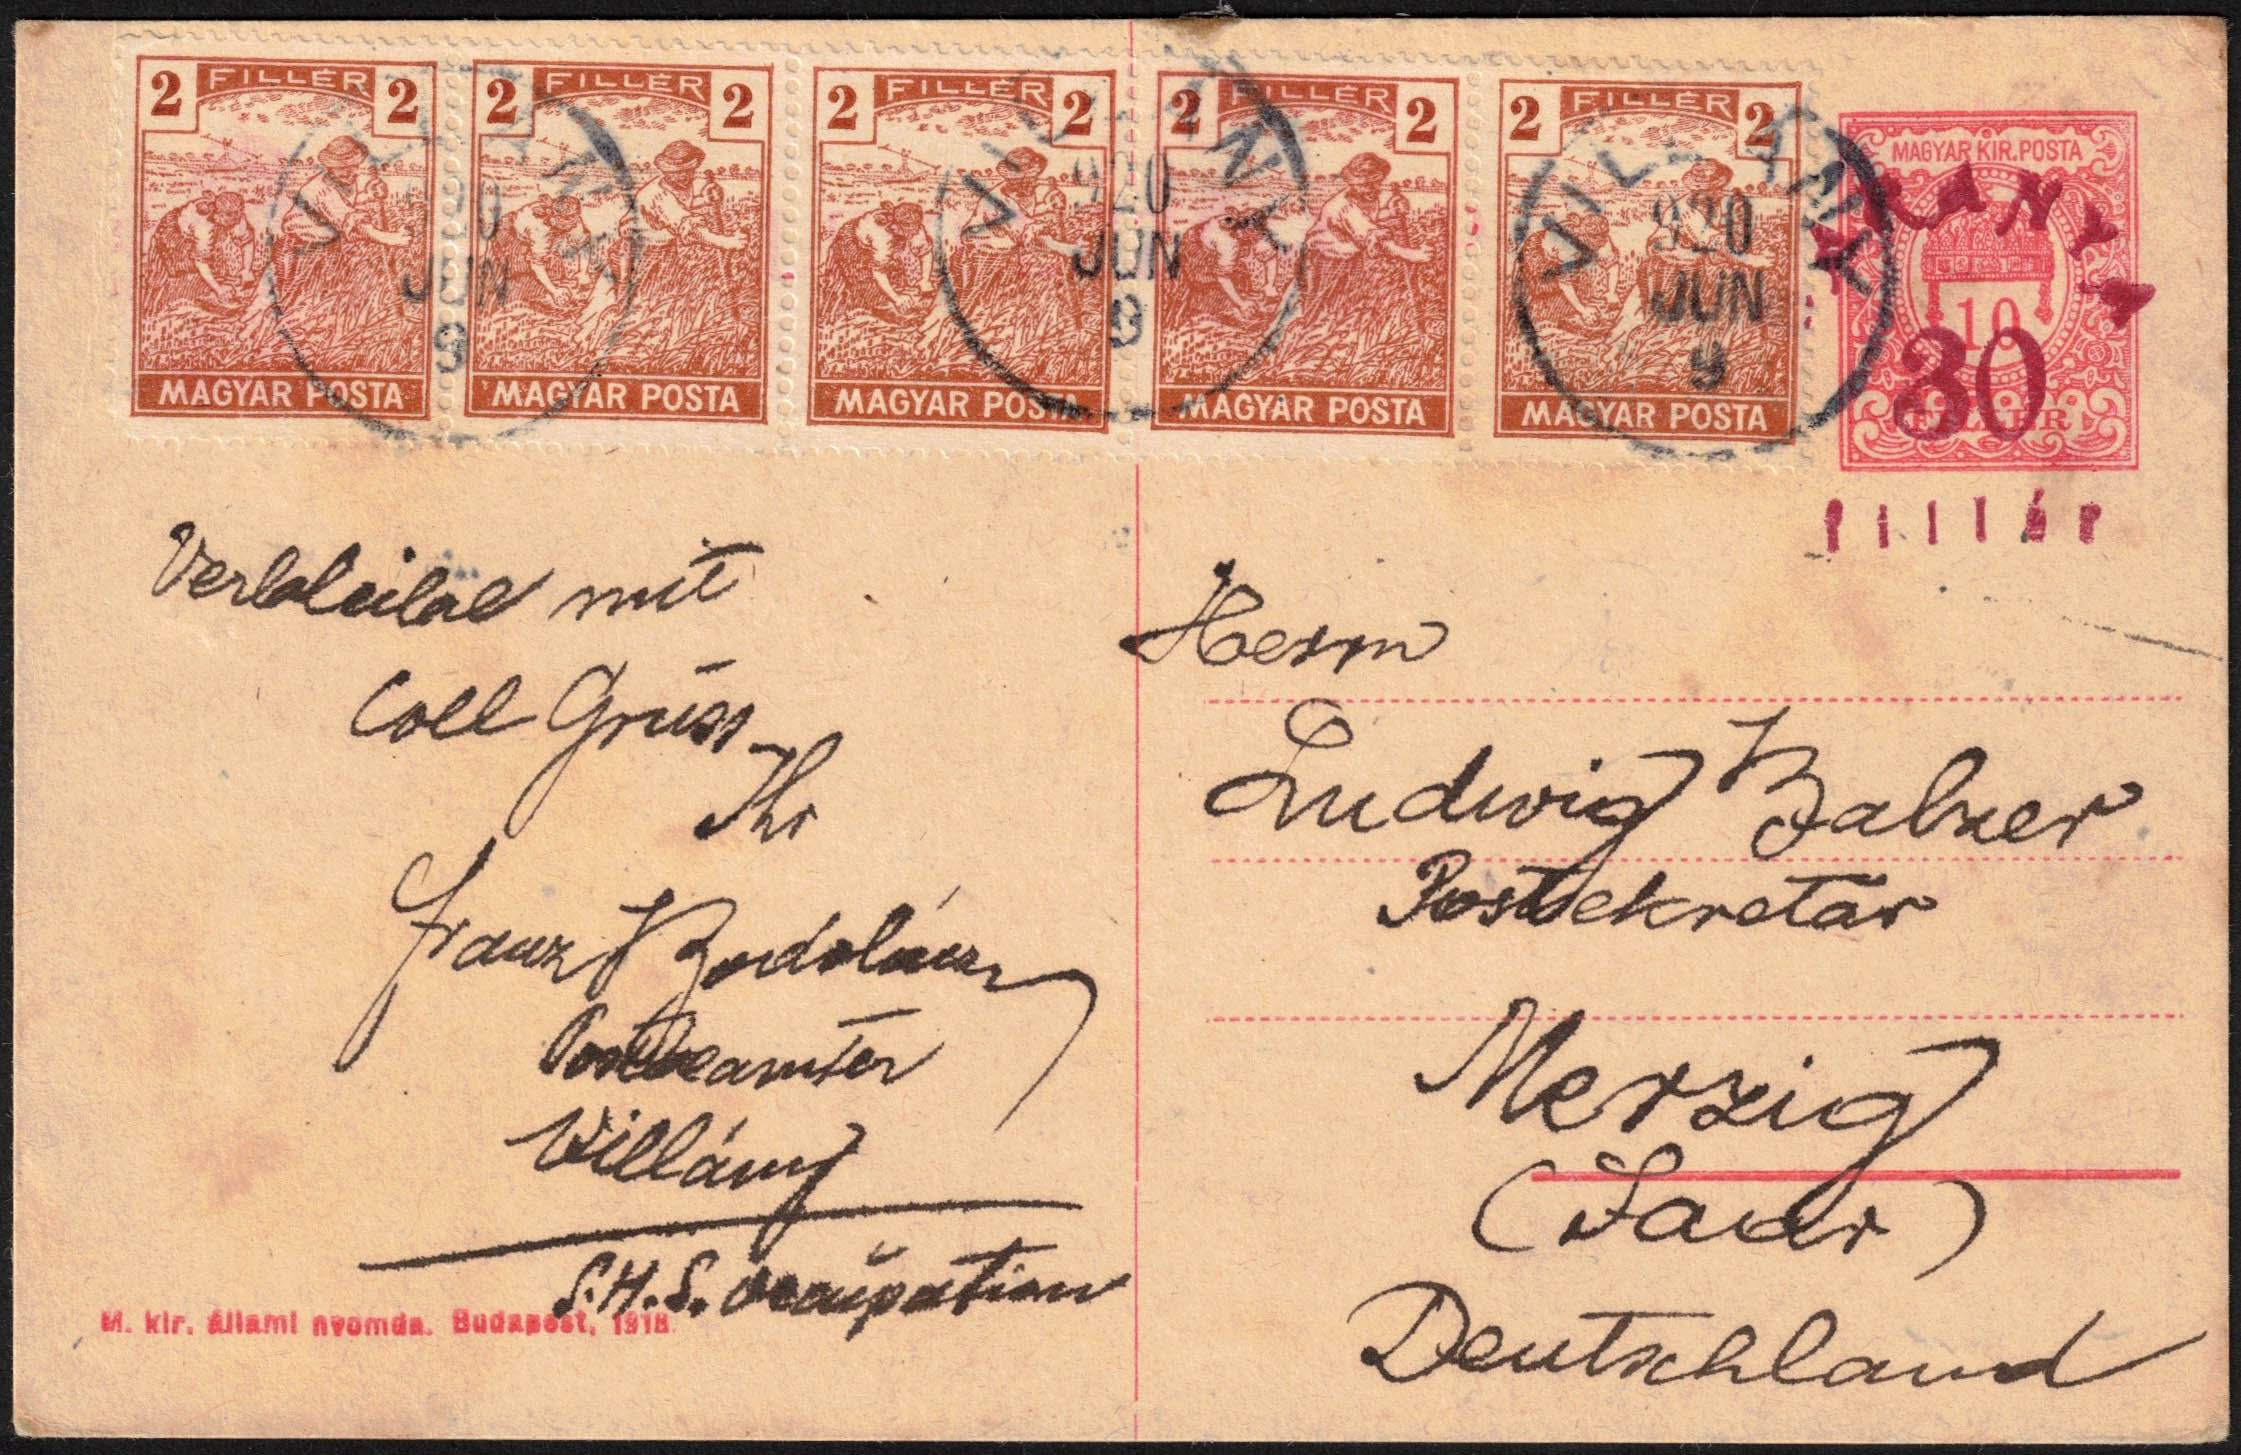 2 FILLÉR 2
MAGYAR POSTA
2 FILLÉR 2
MAGYAR POSTA
2 FILLÉR 2
MAGYAR POSTA
2 FILLÉR 2
MAGYAR POSTA
2 FILLÉR 2
MAGYAR POSTA
VILLÁNY
920
JUN
9
VILLÁNY
920
JUN
9
VILLÁNY
920
JUN
9
MAGYAR KIR. POSTA
BARANYA
10
30
FILLÉR
fillér
Verbleibe mit
Coll Grüss
Ihr
Franz
Postbeamter
Villány
S.H.S. Occupation
M. kir. állami nyomda. Budapest, 1918.
Herrn
Ludwig Balzer
Postsekretär
Merzig
(Saar)
Deutschland